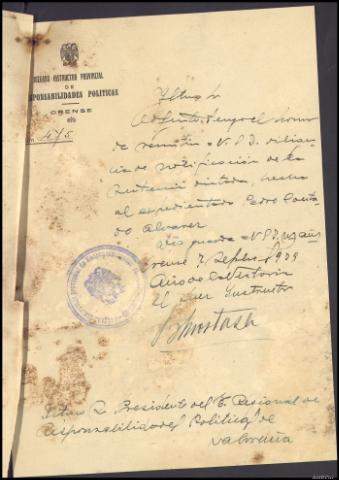 JUZGADO INSTRUCTOR PROVINCIAL
DE
RESPONSABILIDADES POLITICAS
ORENSE
475
Iltmo Sr
Adjunto tengo el honor
de remitir a V.S.I. diligen
cia de notificación de la
sentencia dictada, hecha
al expedientado Pedro
Alvarez
Dios guarde a V.S.I. m. años
Orense 7 Septbre 1939
Año de la Victoria
El Juez Instructor
Iltmo Sr Presidente del T. Regional de
Responsabilidades Politicas de
La Coruña